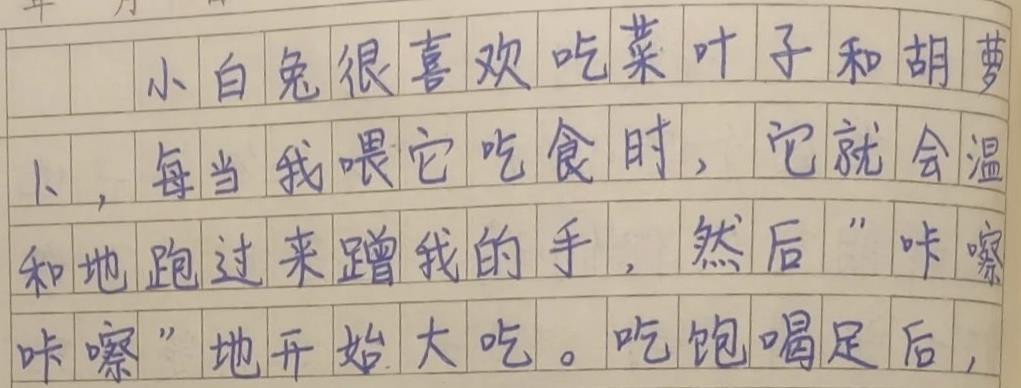 小白兔很喜欢吃菜叶子和胡萝
卜，每当我喂它吃食时，它就会温
和地跑过来蹭我的手，然后"咔嚓
咔嚓"地开始大吃。吃饱喝足后，